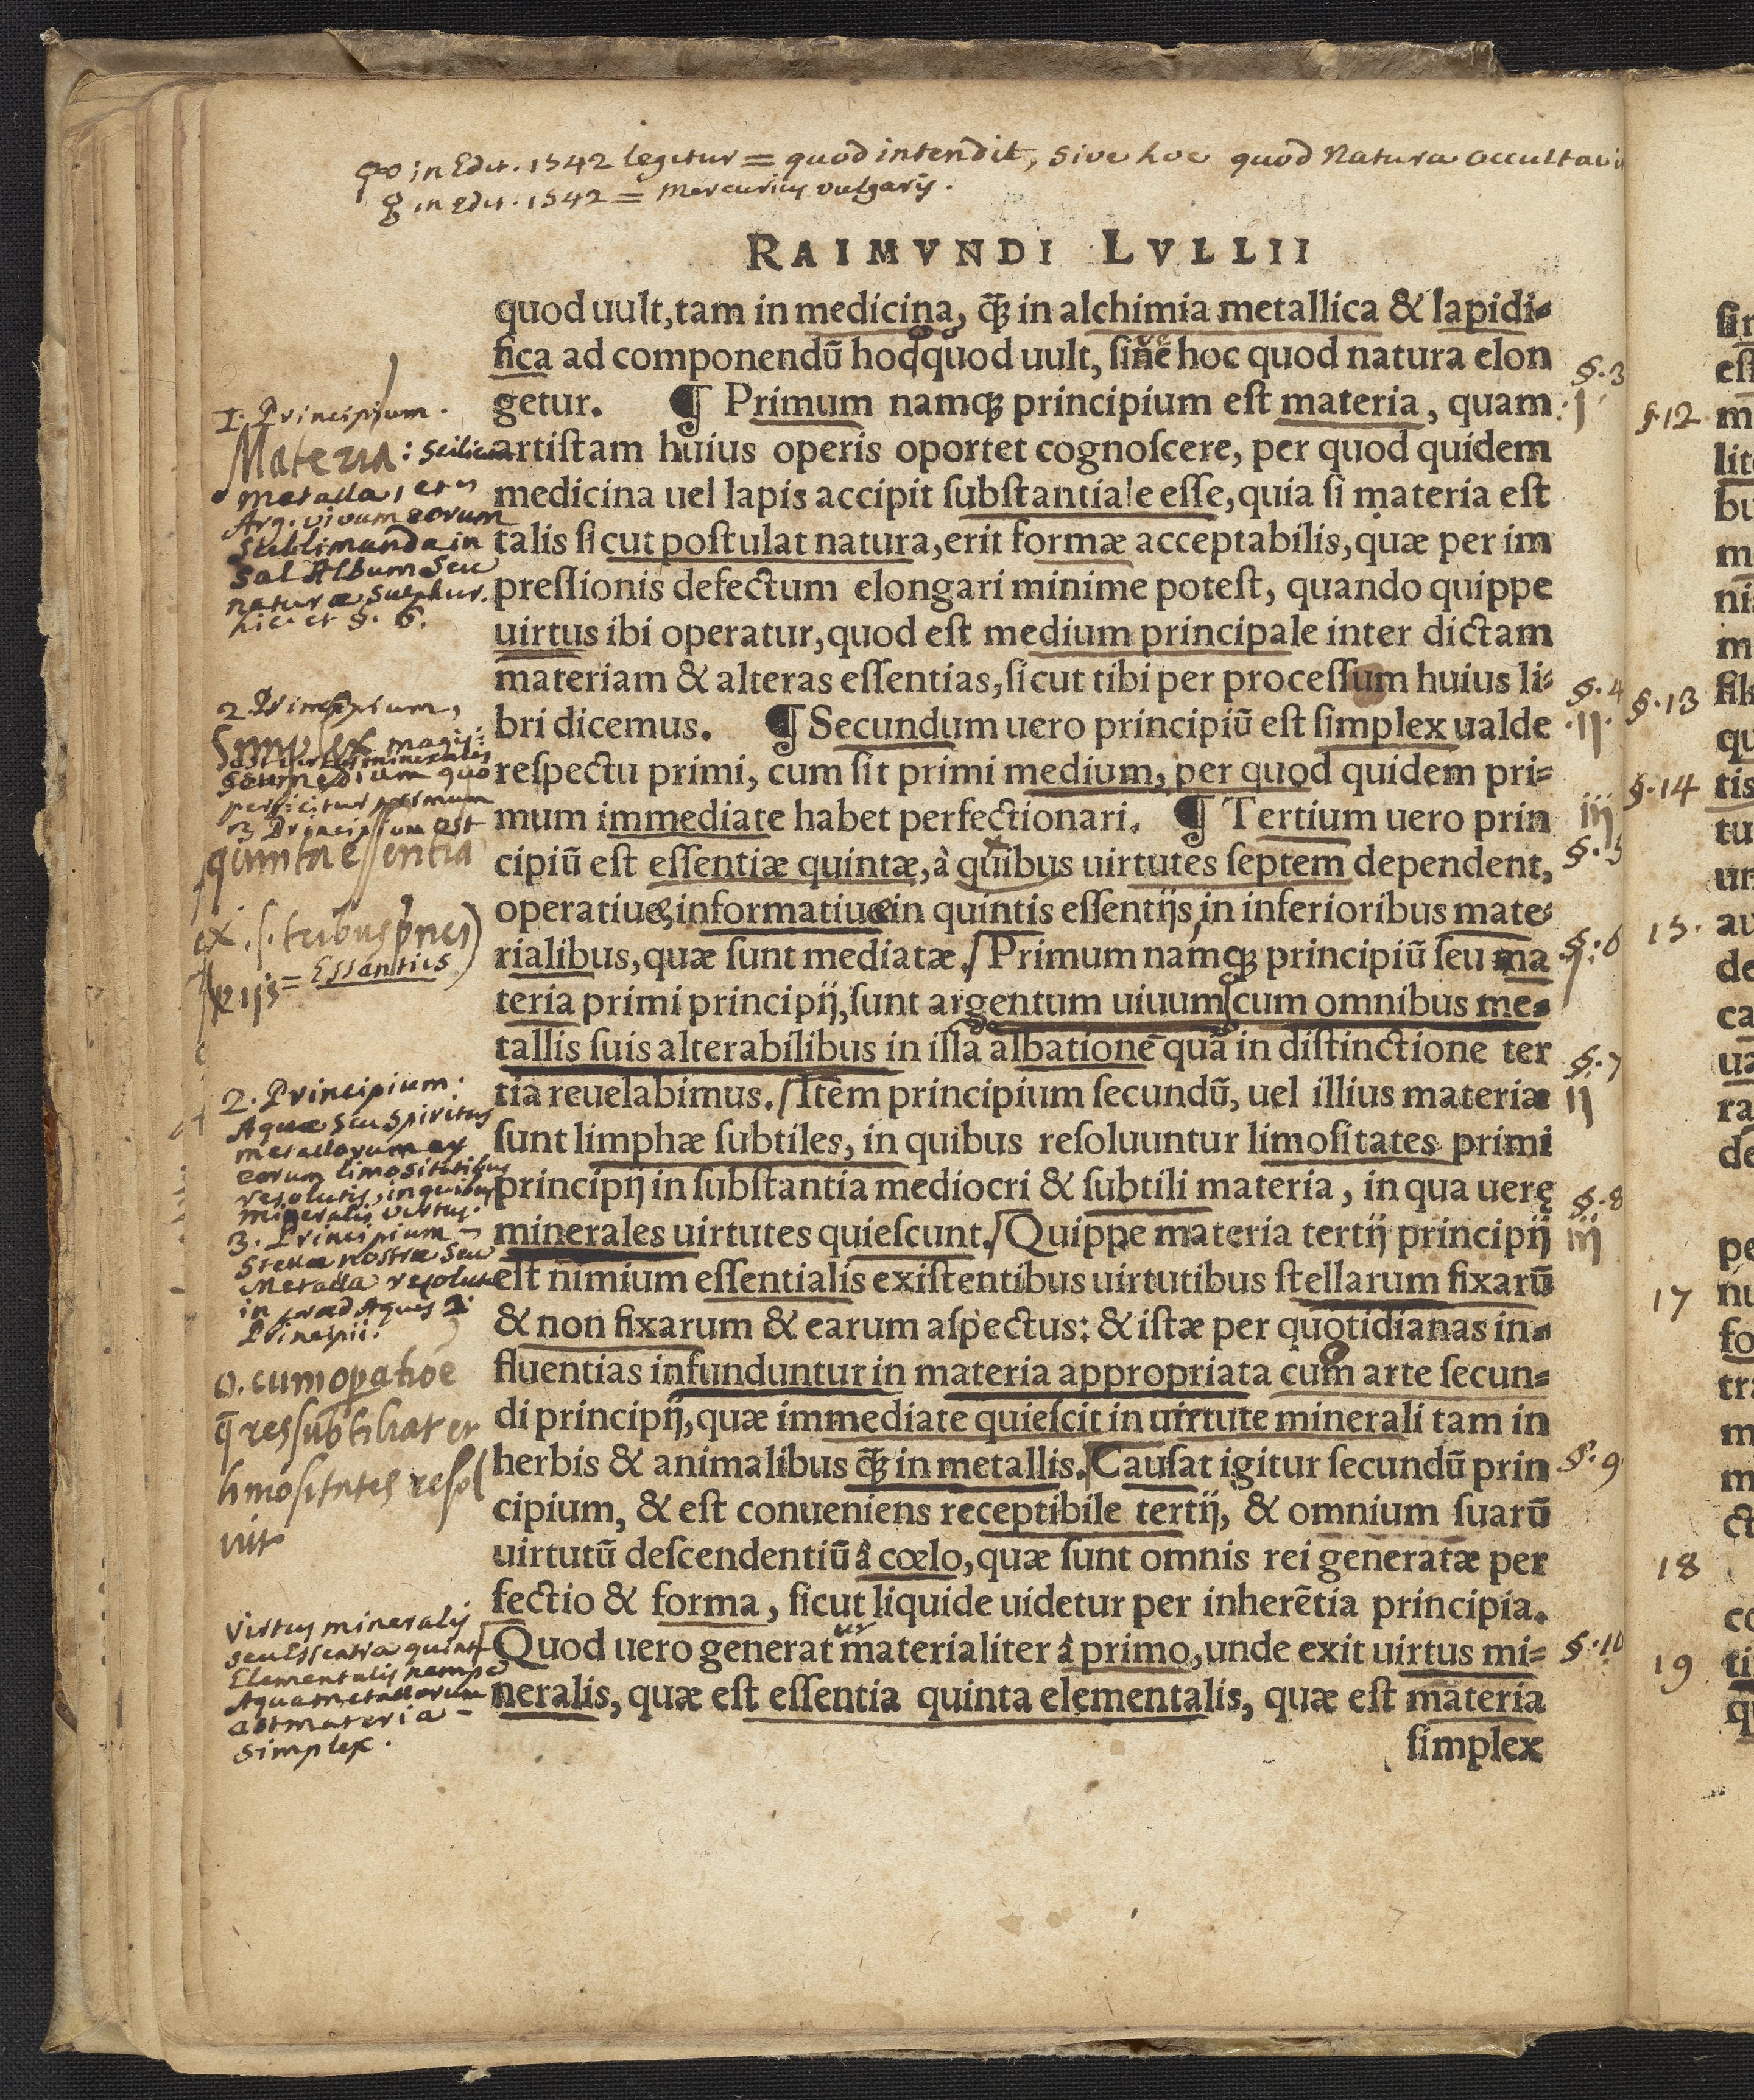 in Edit. 1542 legitur = quod intendit, sive hoc quod Natura occultavi
in Edit. 1542 = Mercurius vulgaris.
RAIMVNDI LVLLII
quod uult, tam in medicina, q̃ꝫ in alchimia metallica & lapidi-
fica ad componendũ hoc quod uult, siue hoc quod natura elon
getur. ¶ Primum namqꝫ principium est materia, quam
artistam huius operis oportet cognoscere, per quod quidem
medicina uel lapis accipit substantiale esse, quia si materia est
talis sicut postulat natura, erit formæ acceptabilis, quæ per im
pressionis defectum elongari minime potest, quando quippe
uirtus ibi operatur, quod est medium principale inter dictam
materiam & alteras essentias, sicut tibi per processum huius li-
bri dicemus. ¶ Secundum uero principiũ est simplex ualde
respectu primi, cum sit primi medium, per quod quidem pri-
mum immediate habet perfectionari. ¶ Tertium uero prin
cipiũ est essentiæ quintæ, à quibus uirtutes septem dependent,
operatiuę, informatiuę in quintis essentijs, in inferioribus mate-
rialibus, quæ sunt mediatæ. Primum namqꝫ principiũ seu ma
teria primi principij, sunt argentum uiuum cum omnibus me-
tallis suis alterabilibus in illa albatione quã in distinctione ter
tia reuelabimus. Item principium secundũ, uel illius materiæ
sunt limphæ subtiles, in quibus resoluuntur limositates primi
principij in substantia mediocri & subtili materia, in qua uerę
minerales uirtutes quiescunt. Quippe materia tertij principij
est nimium essentialis existentibus uirtutibus stellarum fixarũ
& non fixarum & earum aspectus: & istæ per quotidianas in-
fluentias infunduntur in materia appropriata cum arte secun-
di principij, quæ immediate quiescit in uirtute minerali tam in
herbis & animalibus q̃ꝫ in metallis. Causat igitur secundũ prin
cipium, & est conueniens receptibile tertij, & omnium suarũ
uirtutũ descendentiũ à cœlo, quæ sunt omnis rei generatæ per
fectio & forma, sicut liquide uidetur per inherẽtia principia.
Quod uero generat materialiter à primo, unde exit uirtus mi-
neralis, quæ est essentia quinta elementalis, quæ est materia
simplex
1. Principium.
Materia: scilicet
metalla, et
Arg. vivum eorum
sublimanda in
Sal Album seu
naturæ sulphur.
hic et §. 6.
2 Principium,
Simplex
seu medium quo
perficitur primum
3 Principium est
quinta essentia
ijs = Essentiis
2. Principium:
Aquæ seu spiritus
metallorum ex
eorum limositatibus
resolutis, in quibus
mineralis virtus.
3. Principium
Stellæ nostræ seu
Metalla resoluta
in Aquas 2
Principii.
o. cum operatioe
q̄ res subtiliat et
limositates resol
vit
Virtus mineralis
seu Essentia quinta
Elementalis nempe
Aqua metallorum
est materia
simplex.
§.3
j
§.4
.ij.
iij
§.5
§.6
j
§.7
ij
§.8
iij
§.9
§.10
§.12
§.13
§.14
15.
17
18
19